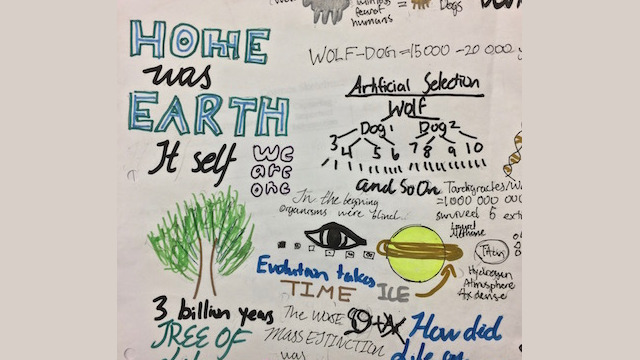 humans
=
Dogs
WOLF-DOG = 15000 - 20 000
HOME
was
EARTH
It self
we
are
one
Artificial Selection
Wolf
Dog 1 Dog 2
3 4 5 6 7 8 9 10
and So On
In the begining
organisms were blind...
Tardigrades/
= 1000 000 00
survived 5
Liquid
Methane
Titan
Hydrogen
Atmosphere
4x dense
Evolution takes
TIME
ICE
3 billion years
TREE OF
The WORSE
MASS EXTINCTION
was
How did